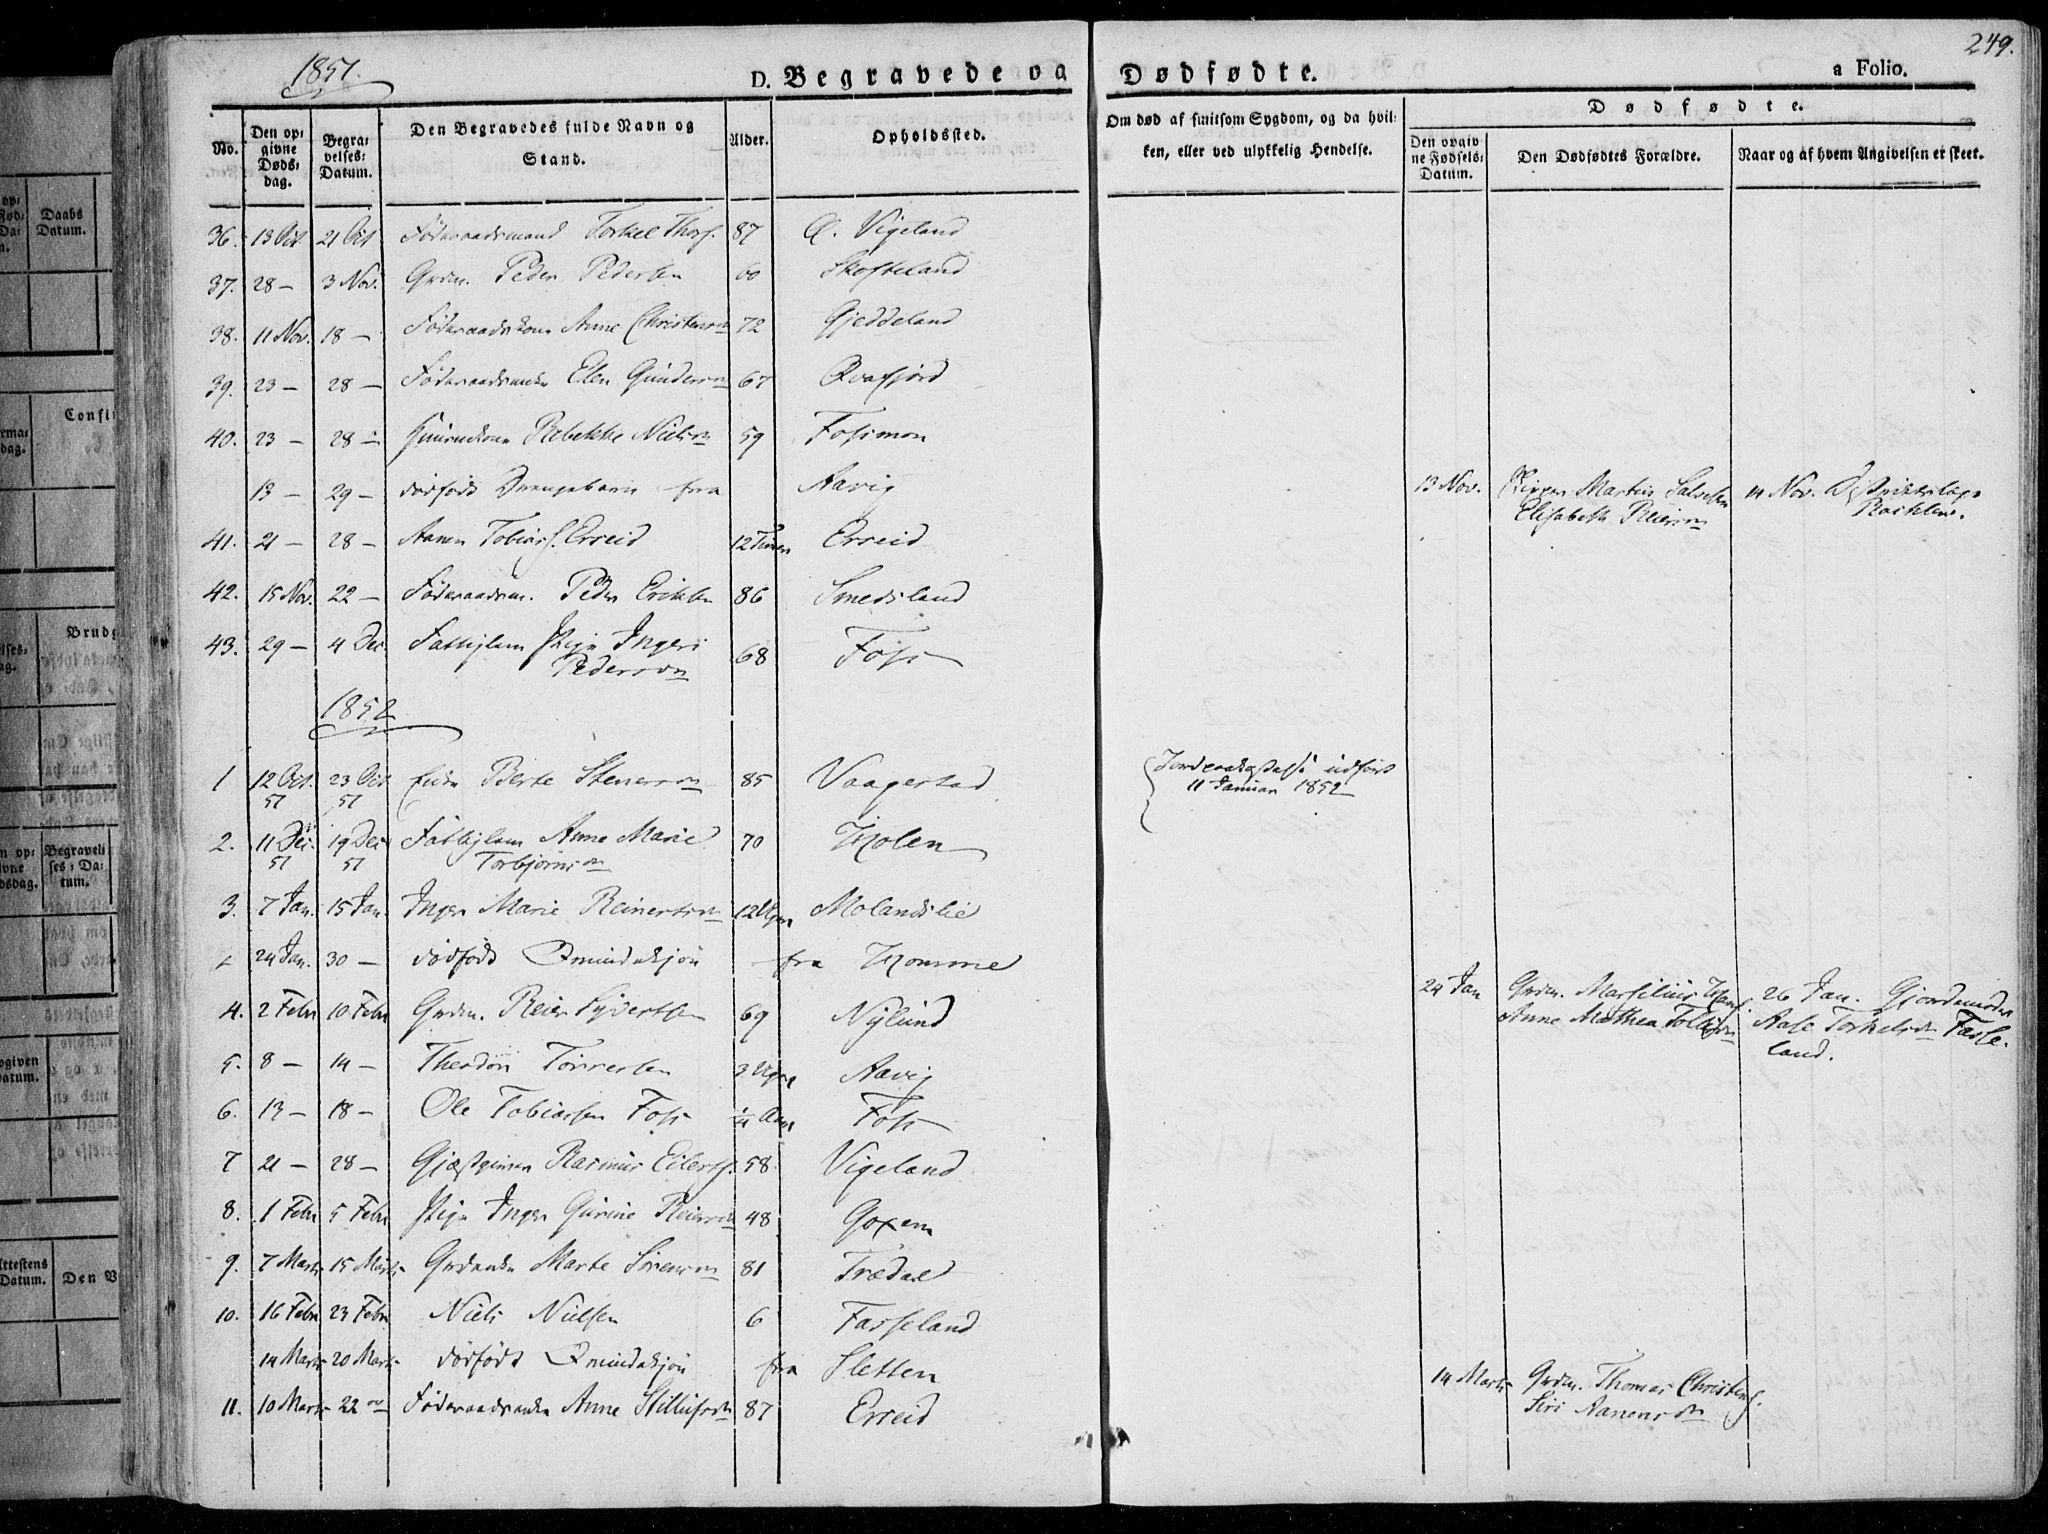 1851.
D. Begravede og Dødfødte.
a Folio.
249.
No.
Den op:
givne
Døds:
dag.
Begra:
velses:
Datum.
Den Begravedes fulde Navn og
Stand.
Alder.
Opholdssted.
Om død af smitsom Sygdom, og da hvil:
ken, eller ved ulykkelig Hendelse.
Dødfødte.
Den opgiv:
ne Fødsels:
Datum.
Den Dødfødtes Forældre.
Naar og af hvem Angivelsen er skeet.
36. 13 Oct 21 Oct Föderaadsmand Torkel Thors. 87 Ø. Vigeland
37. 28 — 3 Nov. Grdm. Peder Pedersen 60 Skofteland
38. 11 Nov. 18 — Föderaadskone Anne Christensdr 72 Gjeddeland
39. 23 — 28 — Föderaadsenke Elen Gundersdr 67 Qvafjord
40. 23 — 28 — Huusmdkone Rebekke Nielsdr 59 Fossmon
13 — 29 — dödfödt Drengebarn fra Aavig 13 Nov. Skipper Martin Salvesen 14 Nov. Districtslæge
Elisabeth Reiersdr
41. 21 — 28 — Aanen Tobiass. Erreid 12 Timer Erreid
42. 15 Nov. 22 — Föderaadsm. Peder Eriksen 86 Smedsland
43. 29 — 4 Dec. Fattiglem Pige Ingeri 68 Foss
Pedersdr
1852
1 12 Oct. 51 23 Oct 51 Enke Berte Stenersdr 85 Vaagestad Jordpaakastelse udfört
11 Januar 1852
2. 11 Dec. 51 19 Dec 51 Fattiglem Anne Marie 70 Holen
Torbjörnsdr
3. 7 Jan. 15 Jan. Inger Marie Reinertsdr 12 Uger Molandslie
24 Jan. 30 — dödfödt Qvindekjön fra Homme 24 Jan Grdm. Marsilius Hans. 26 Jan. Gjordemoder
Anne Mathea Tollagsdr Aase Torkelsdr Fasse-
land.
4. 2 Febr 10 Febr Grdm. Reier Syvertsen 69 Nylund
5. 8 — 14 — Theodor Törresen 3 Uger Aavig
6. 13 — 18 — Ole Tobiassen Foss ¼ Aar Foss
7 21 — 28 — Gjæstgiver Rasmus Eilerts. 58 Vigeland
8. 1 Febr 5 Febr Pige Inger Gurine Reiersdr 48 Goxem
9. 7 Marts 15 Marts Grdenke Marte Sörensdr 81 Trædal
10. 16 Febr 23 Febr Niels Nielsen 6 Fasseland
14 Marts 20 Marts dödfödt Qvindekjön fra Sletten 14 Marts Grdm. Thomas Christens.
Siri Aanensdr
11. 10 Marts 22 Föderaadsenke Anne Stillufsdr 87 Erreid